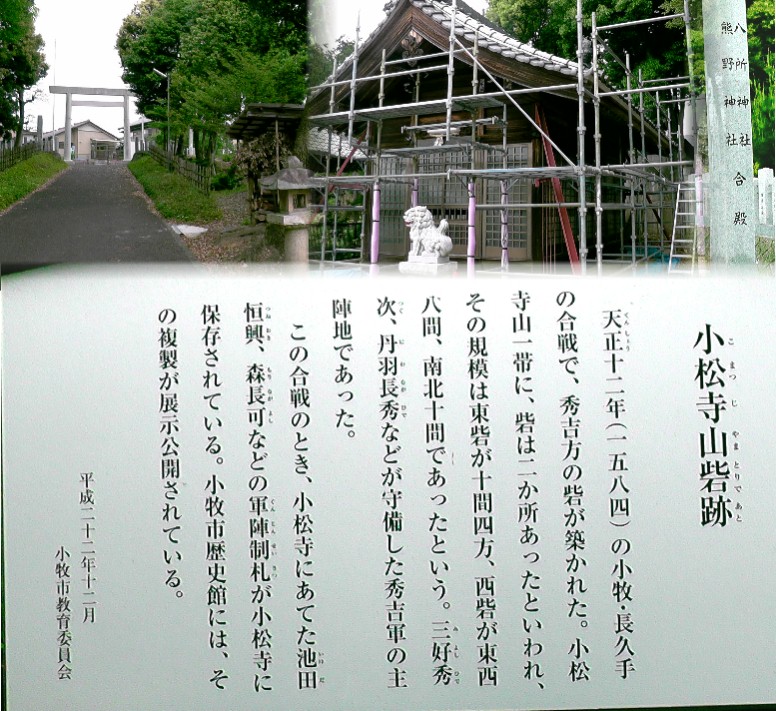 八所神社
熊野神社
合殿
小松寺山砦跡
こまつじやまとりであと
天正十二年(一五八四)の小牧・長久手
の合戦で、秀吉方の砦が築かれた。小松
寺山一帯に、砦は二か所あったといわれ、
その規模は東砦が十間四方、西砦が東西
八間、南北十間であったという。三好秀
次、丹羽長秀などが守備した秀吉軍の主
陣地であった。
この合戦のとき、小松寺にあてた池田
恒興、森長可などの軍陣制札が小松寺に
保存されている。小牧市歴史館には、そ
の複製が展示公開されている。
平成二十二年十二月
小牧市教育委員会